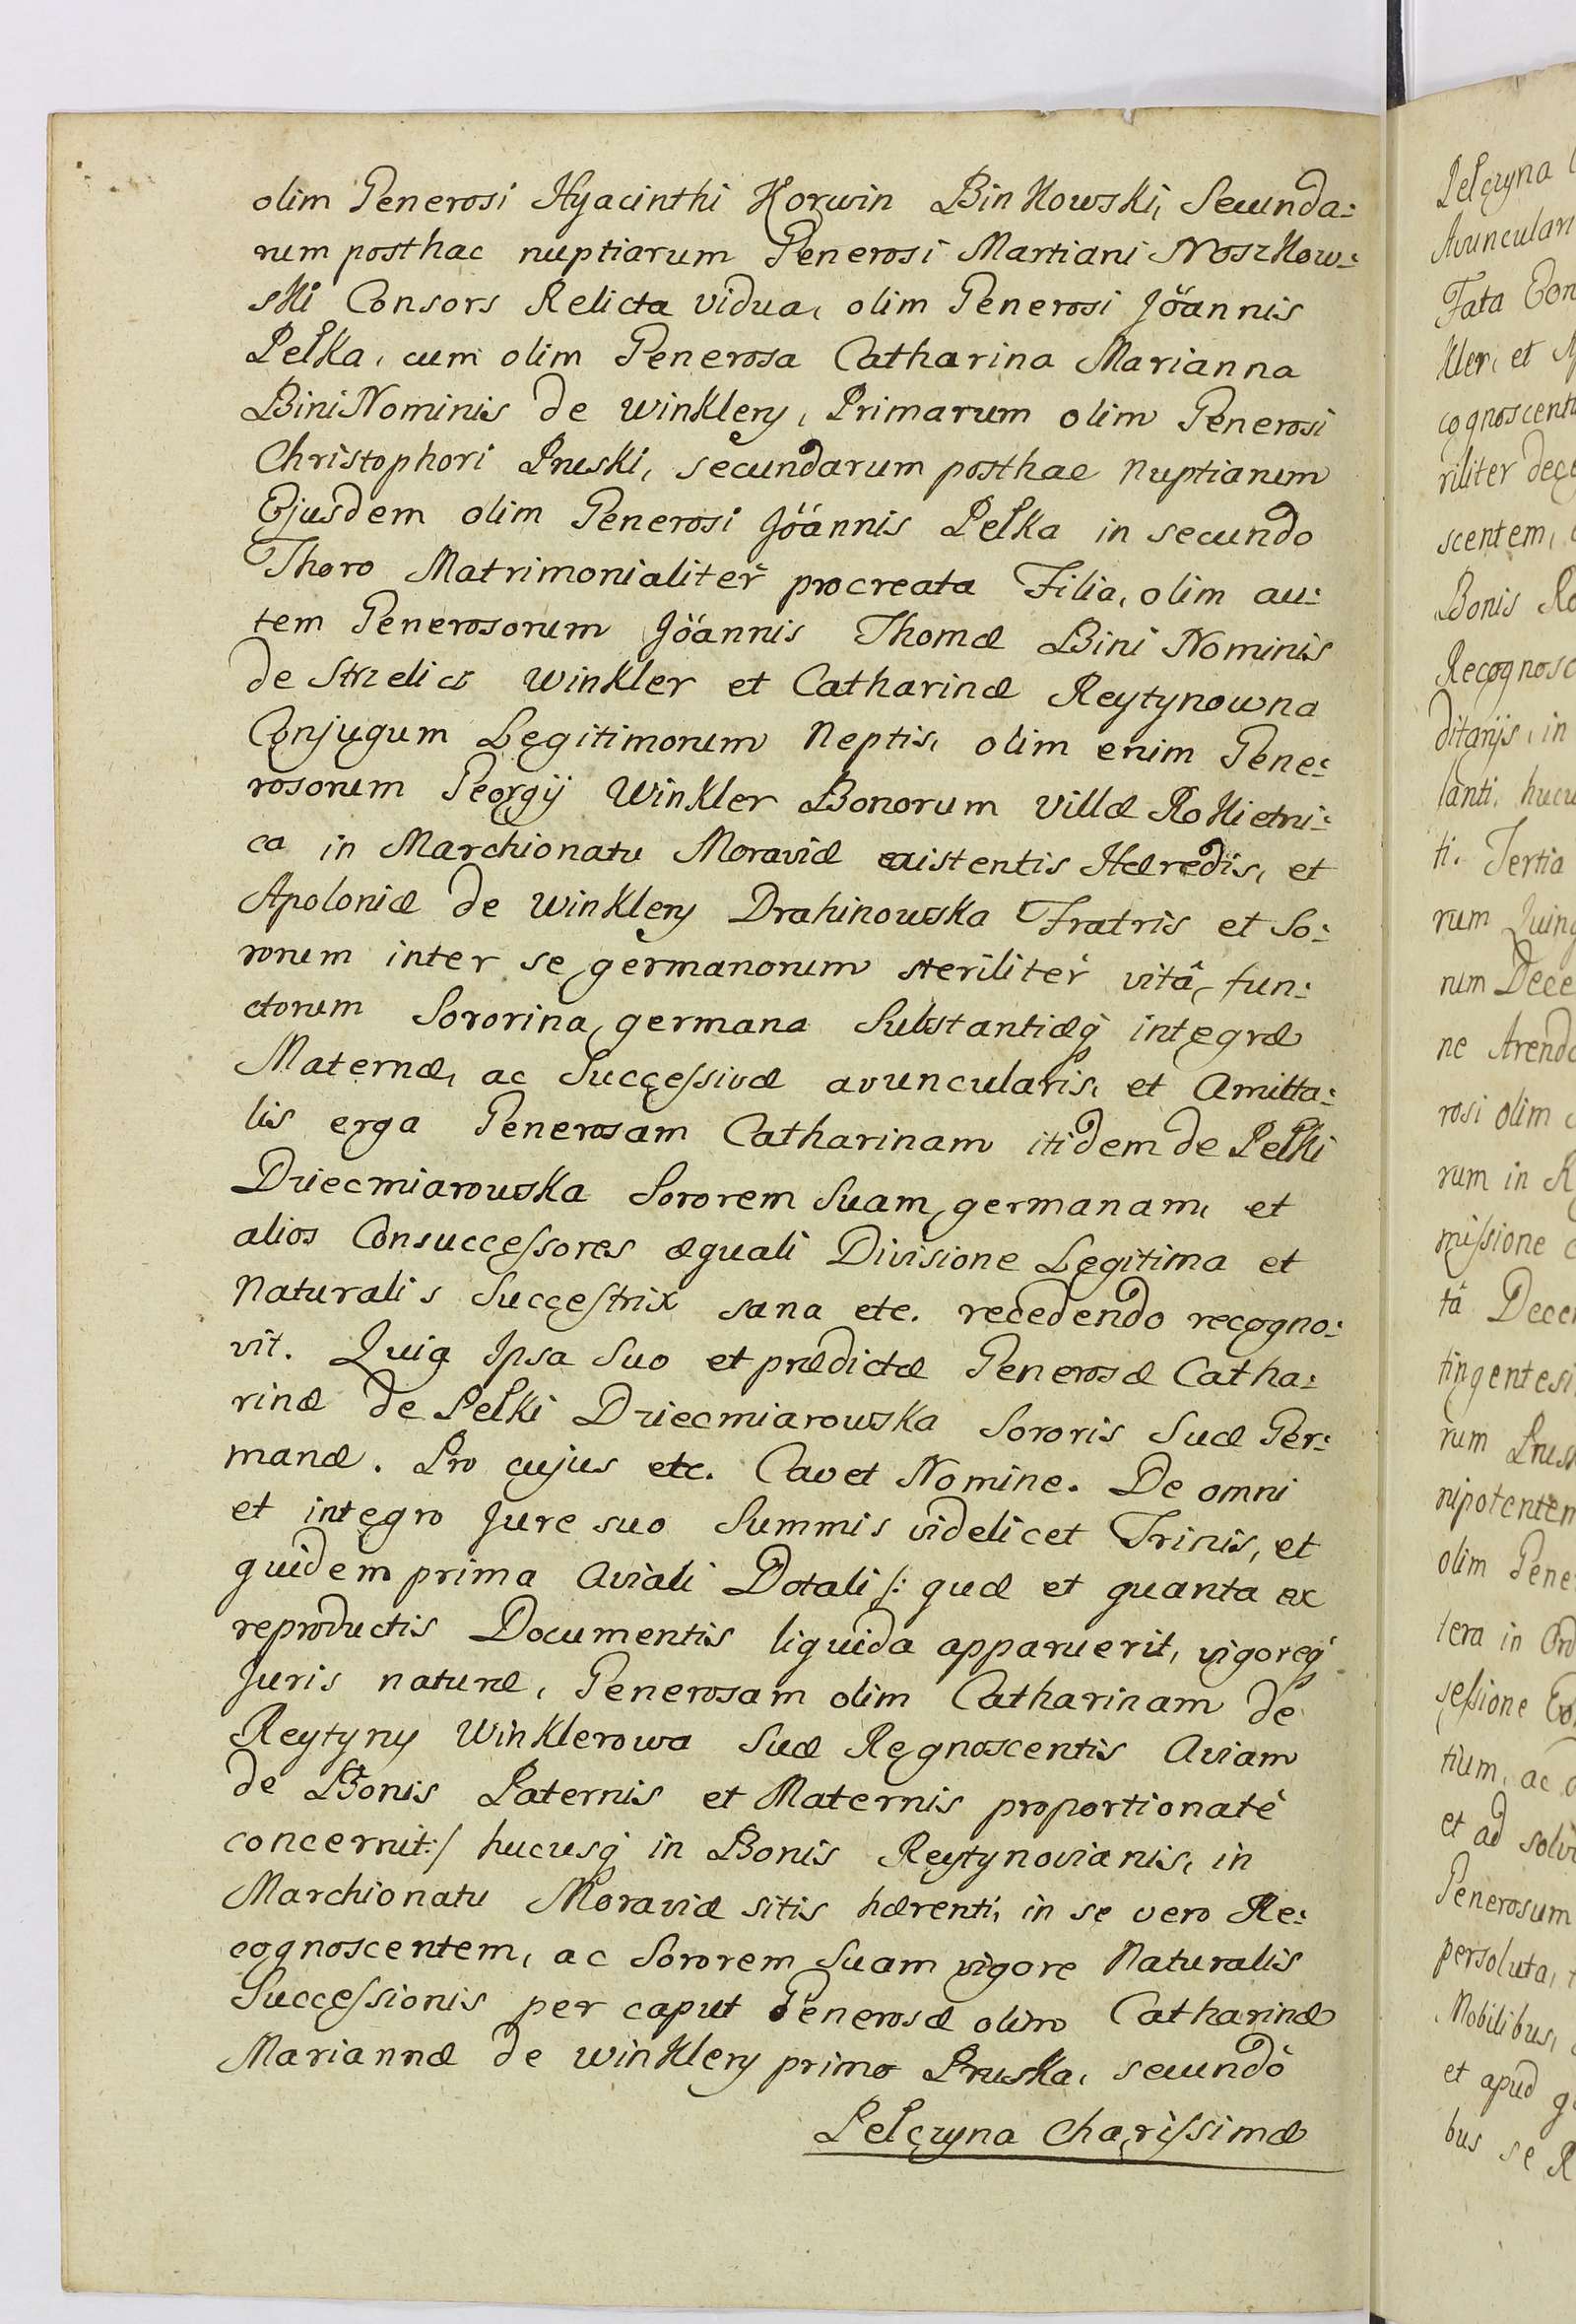 olim Generosi Hyacinthi Korwin Binkowski, Secunda:
rum posthac nuptiarum Generosi Martiani Noszkow:
ski Consors Relicta vidua, olim Generosi Jöannis
Pełka, cum olim Generosa Catharina Marianna
Bini Nominis de Winklery, Primarum olim Generosi
Christophori Pruski, secundarum posthac nuptiarum
Ejusdem olim Generosi Jöannis Pełka in secundo
Thoro Matrimonialitèr procreata Filia, olim au:
tem Generosorum Jöannis Thomæ Bini Nominis
de Strzelicz Winkler et Catharinæ Reytynowna
Conjugum Legitimorum Neptis, olim enim Gene:
rosorum Georgÿ Winkler Bonorum villæ Rokietni:
ca in Marchionatu Moraviæ existentis Hæredis, et
Apoloniæ de Winklery Drahinowska Fratris et So:
rorum inter se germanorum steriliter vitâ fun:
ctorum Sororina germana Substantiæq̀ integræ
Maternæ, ac Successivæ avuncularis, et Amitta:
lis erga Generosam Catharinam itidem de Pełki
Dziecmiarowska Sororem Suam germanam, et
alios Consuccessores æquali Divisione Legitima et
Naturalis Successtrix sana etc. recedendo recogno:
vit. Quia Ipsa Suo et prædictæ Generosæ Catha:
rinæ de Pełki Dziecmiarowska Sororis Suæ Ger:
manæ. Pro cujus etc. Cavet Nomine. De omni
et integro Jure suo Summis videlicet Trinis, et
quidem prima Aviali Dotali /: quæ et quanta ex
reproductis Documentis liquida apparuerit, vigoreq̀
Juris naturæ, Generosam olim Catharinam de
Reytyny Winklerowa Suæ Regnoscentis Aviam
de Bonis Paternis et Maternis proportionatè
concernit:/ hucusq̀ in Bonis Reytynovianis, in
Marchionatu Moraviæ sitis hærenti, in se vero Re:
cognoscentem, ac Sororem Suam vigore Naturalis
Successionis per caput Generosæ olim Catharinæ
Mariannæ de Winklery primo Pruska, secundò
Pełczyna Charissimæ
Pełczyna
Avuncular
Fata
kler, et
cognoscent
riliter
scentem,
Bonis
Recognosc
ditarÿs, in
lanti, hucu
ti. Tertia
rum
rum Dece
ne Arend
rosi olim
rum in
missione
tâ Dece
tingentesi
rum Prus
nipotentem
olim Gene
tera in Ord
sessione
tium, ac
et ad solv
Generosum
persoluta,
Nobilibus,
et apud
bus se R